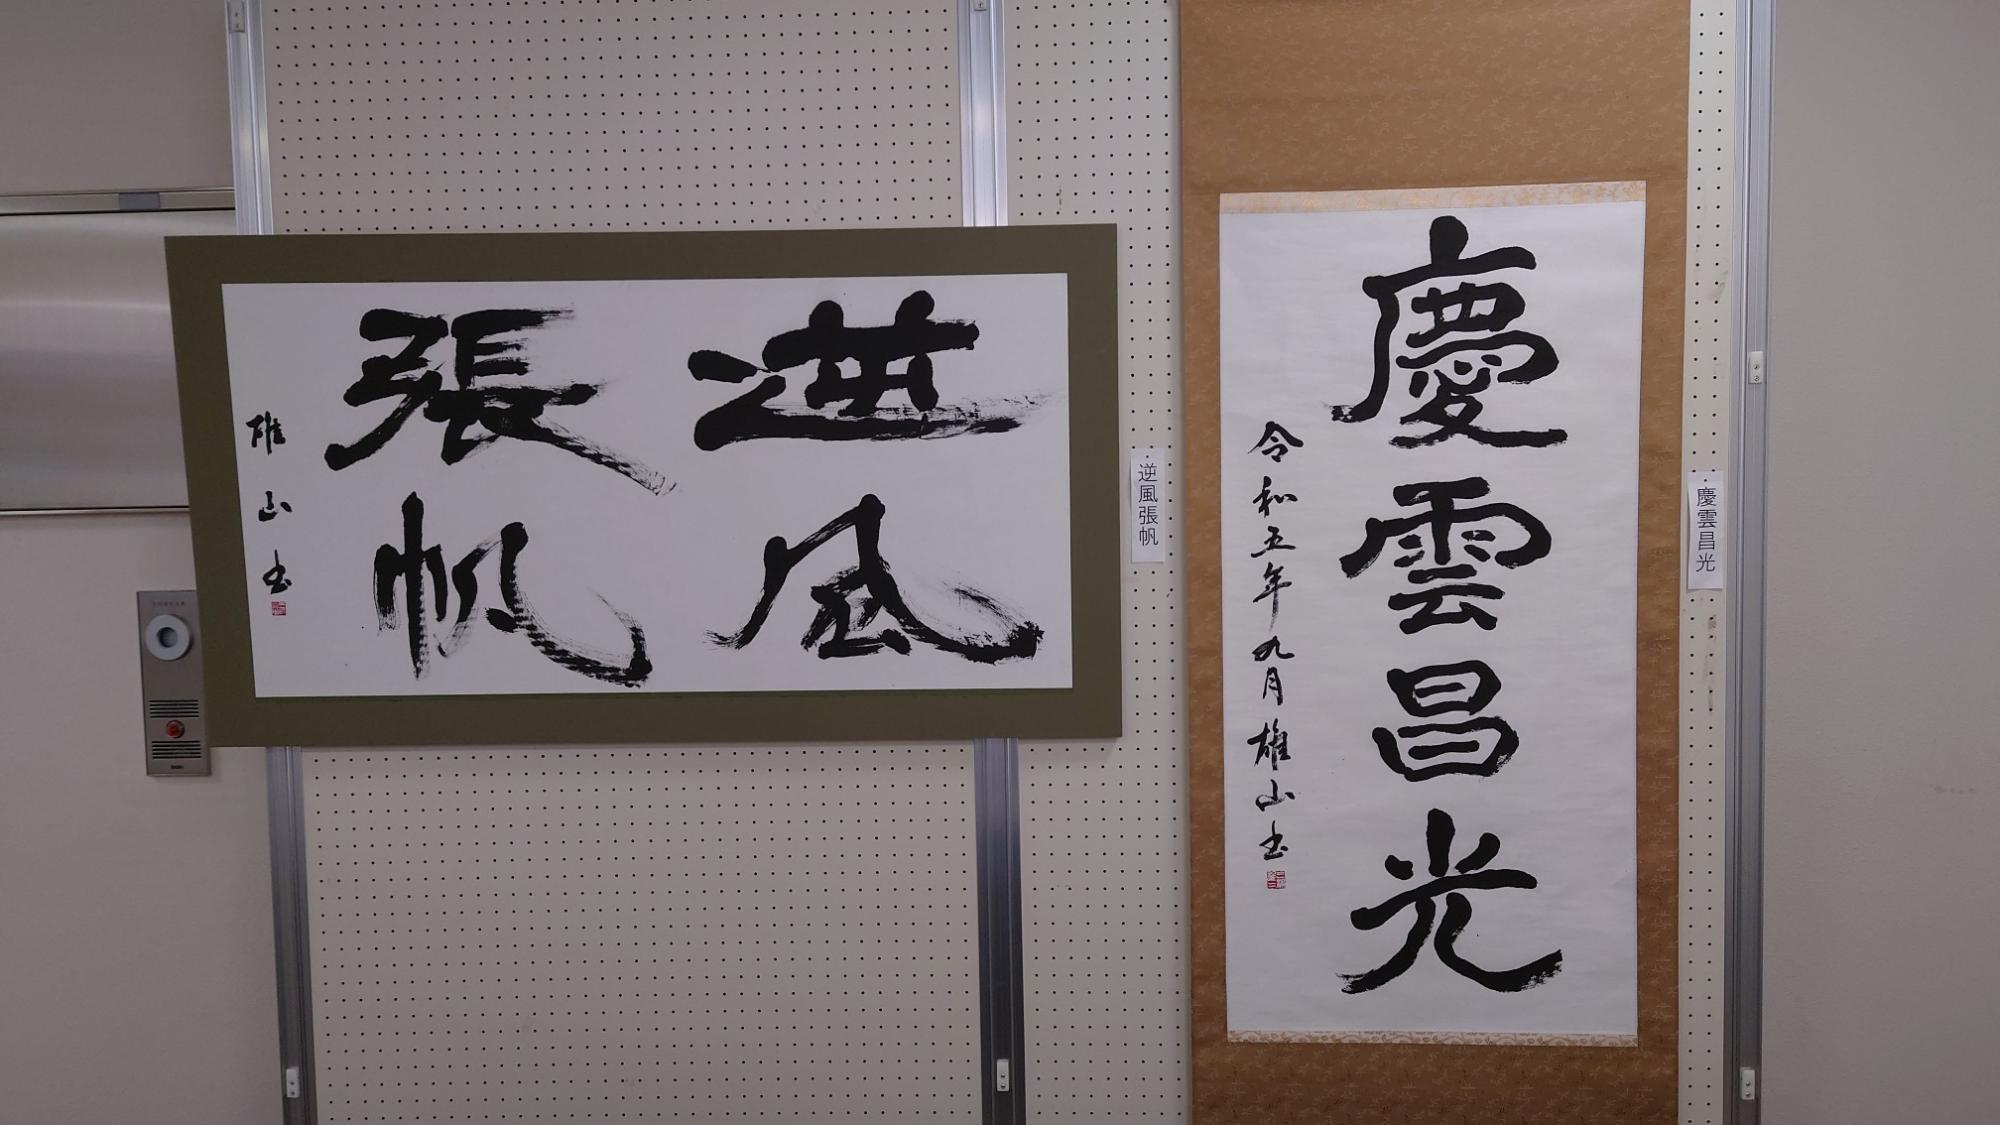 慶雲昌光
令和五年九月雄山書
慶雲昌光
逆風
張帆
雄山書
逆風張帆